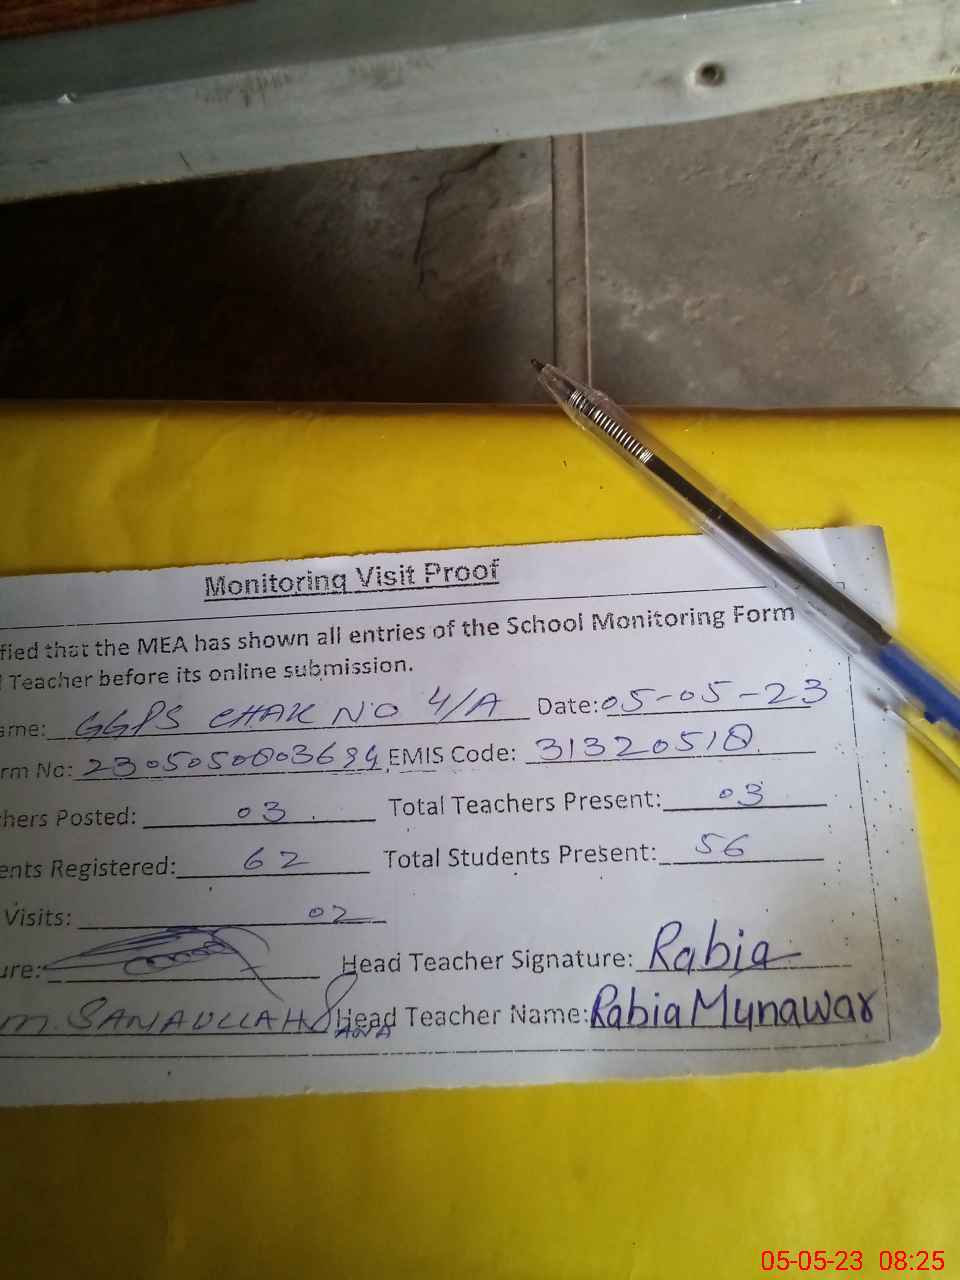 Monitoring Visit Proof
fied that the MEA has shown all entries of the School Monitoring Form
Teacher before its online submission.
ame: GGPS CHAK NO 4/A Date: 05-05-23
rm No: EMIS Code: 31320518
hers Posted: 03 Total Teachers Present: 03
ents Registered: 62 Total Students Present: 56
Visits: 02
ure: Head Teacher Signature: Rabia
M. SANAULLAH Head Teacher Name: Rabia Munawar
05-05-23 08:25